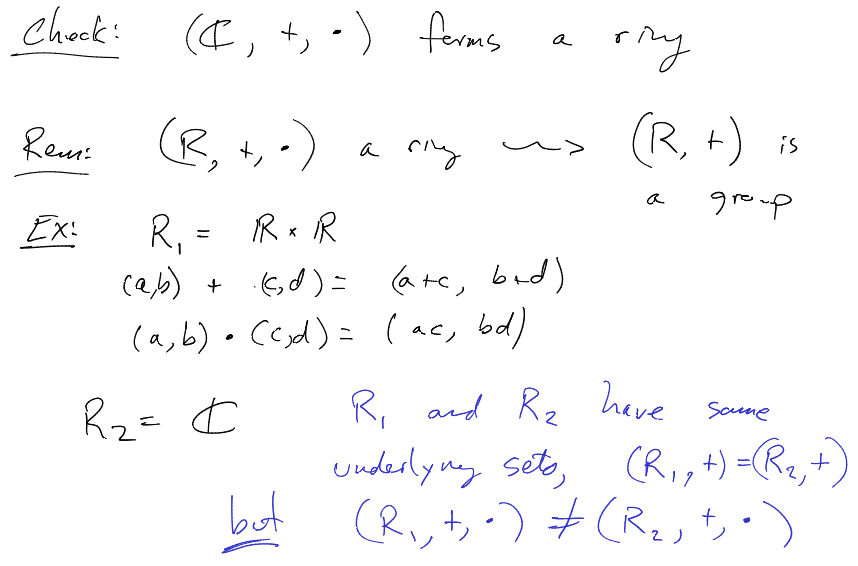 Check: (ℂ, +, ·) forms a ring
Rem: (R, +, ·) a ring ⇝ (R, +) is
a group
Ex: R₁ = ℝ × ℝ
(a,b) + (c,d) = (a+c, b+d)
(a,b) · (c,d) = (ac, bd)
R₂ = ℂ
R₁ and R₂ have same
underlying sets, (R₁, +) = (R₂, +)
but (R₁, +, ·) ≠ (R₂, +, ·)